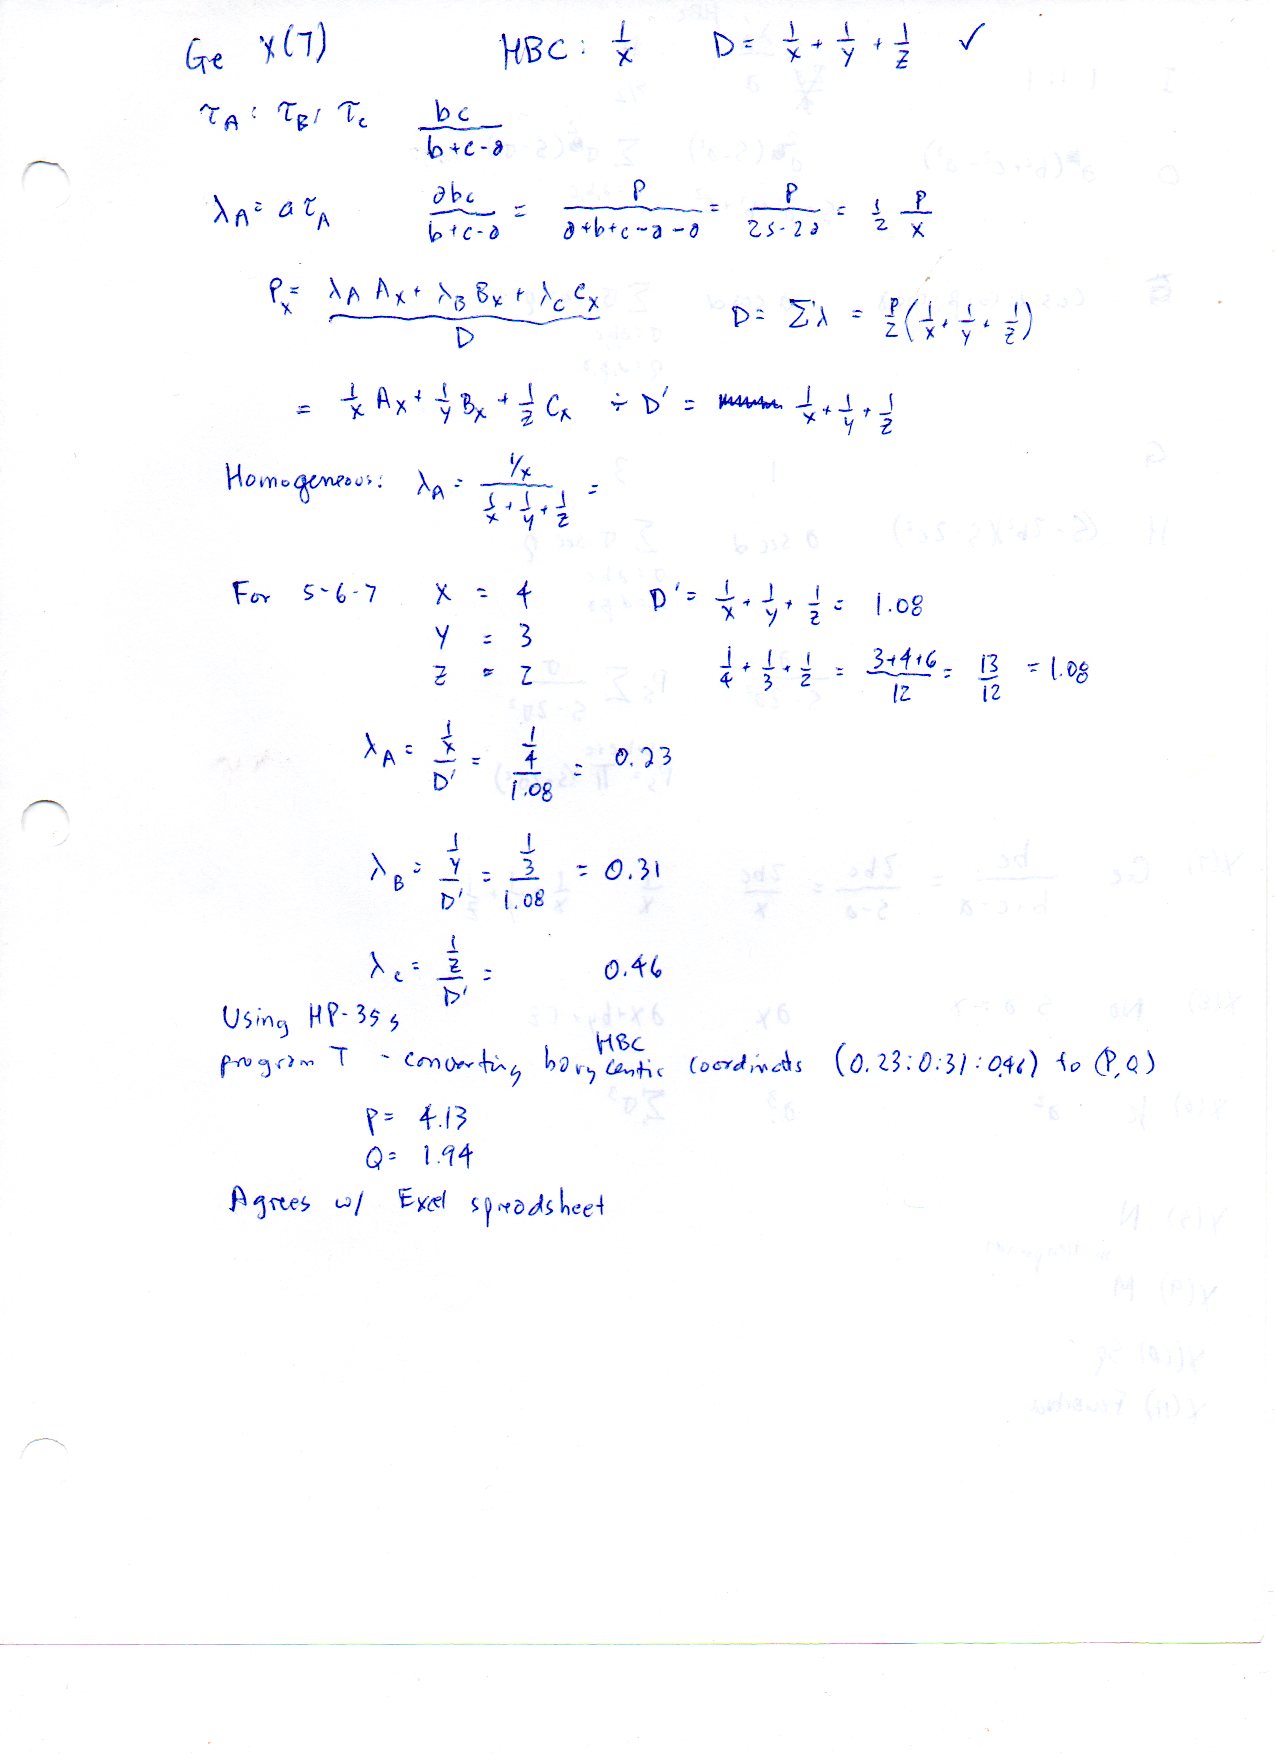 Ge X(7) HBC: 1/x D = 1/x + 1/y + 1/z ✓
τA : τB : τC bc/(b+c-a)
λA = a τA abc/(b+c-a) = P/(a+b+c-a-a) = P/(2s-2a) = 1/2 P/x
Px = (λA Ax + λB Bx + λC Cx)/D D = Σλ = P/2 (1/x + 1/y + 1/z)
= 1/x Ax + 1/y Bx + 1/z Cx ÷ D' = 1/x + 1/y + 1/z
Homogeneous: λA = (1/x)/(1/x + 1/y + 1/z) =
For 5-6-7 x = 4 D' = 1/x + 1/y + 1/z = 1.08
y = 3
z = 2 1/4 + 1/3 + 1/2 = (3+4+6)/12 = 13/12 = 1.08
λA = (1/x)/D' = (1/4)/1.08 = 0.23
λB = (1/y)/D' = (1/3)/1.08 = 0.31
λC = (1/z)/D' = 0.46
Using HP-35s
HBC
program T - converting barycentic coordinates (0.23:0.31:0.46) to (P,Q)
P = 4.13
Q = 1.94
Agrees w/ Excel spreadsheet